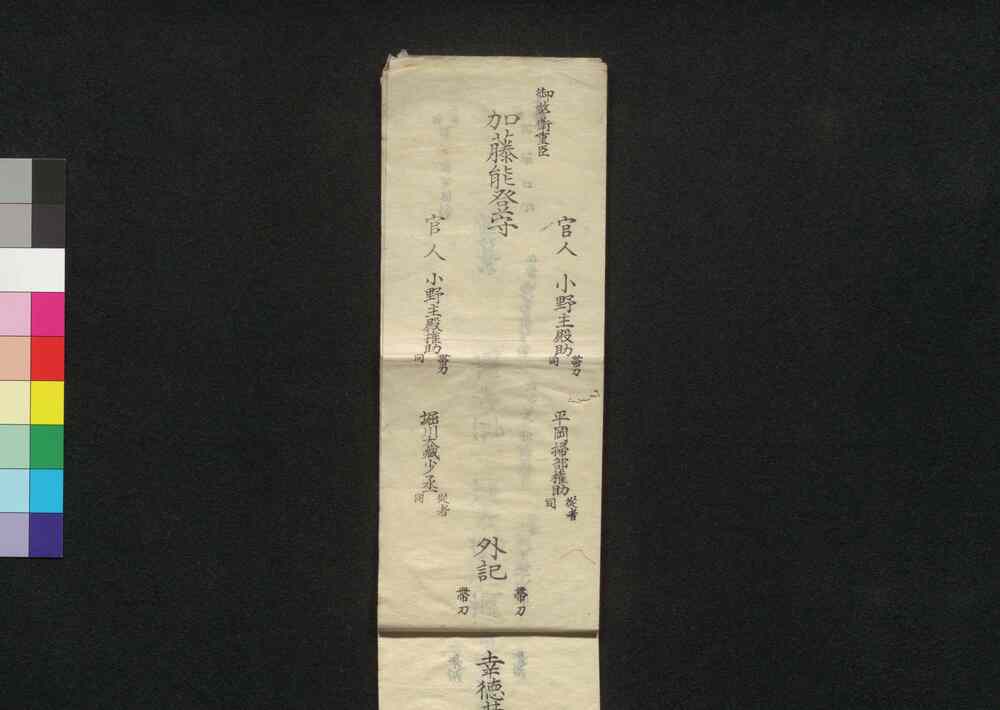 御警衛重臣
加藤能登守
官人 小野主殿助
帯刀
同
官人 小野主殿権助
帯刀
同
平岡掃部権助
従者
同
堀川大蔵少丞
従者
同
外記
帯刀
帯刀
幸徳井